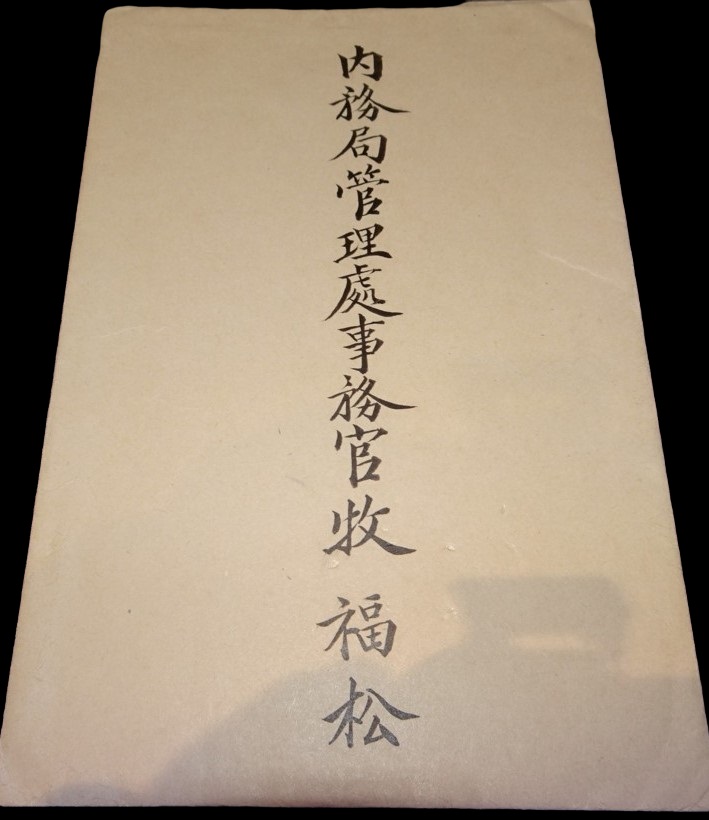 内務局管理處事務官牧 福松